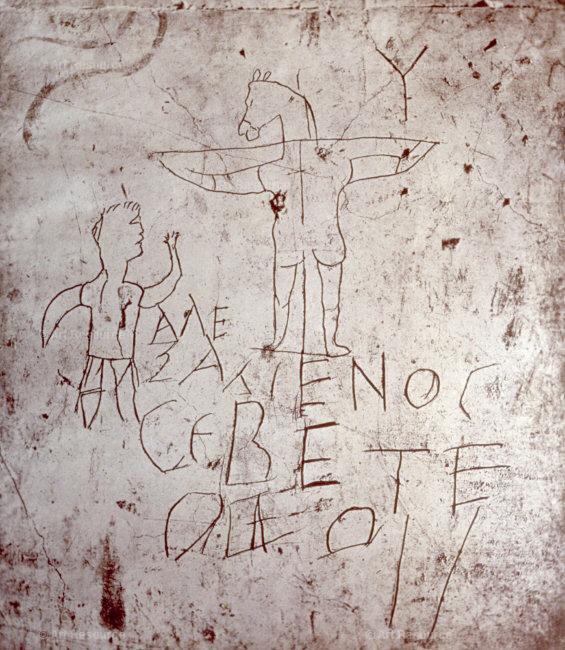 Υ
ΑΛΕ
ΞΑΜΕΝΟϹ
ϹΕΒΕΤΕ
ΘΕΟΝ
© Art Resource © Art Resource